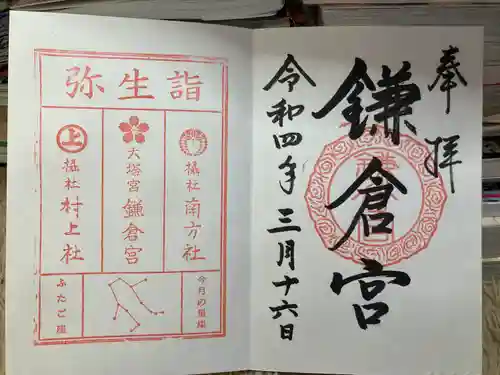 奉拝
鎌倉宮
令和四年三月十六日
弥生詣
摂社 南方社
大塔宮 鎌倉宮
上
摂社 村上社
今月の星座
ふたご座